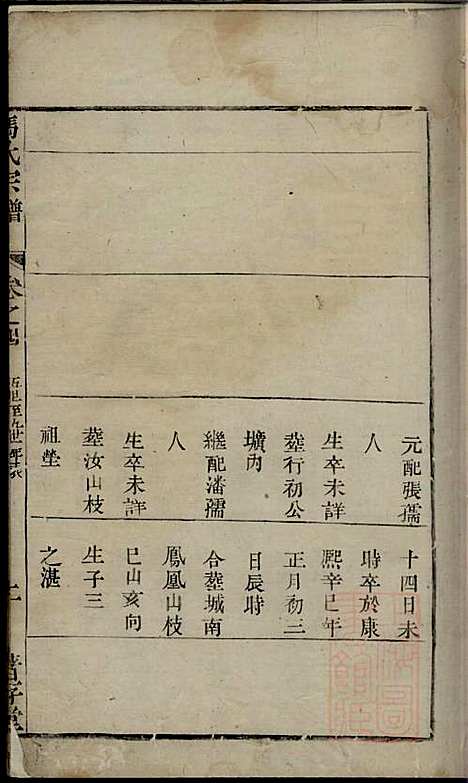 元配張孺
人
生卒未詳
葬行初公
壙內
繼配潘孺
人
生卒未詳
葬汝山枝
祖塋
十四日未
時卒於康
熙辛巳年
正月初三
日辰時
合葬城南
鳳凰山枝
巳山亥向
生子三
之湛
馮氏宗譜
卷之
五世至九世